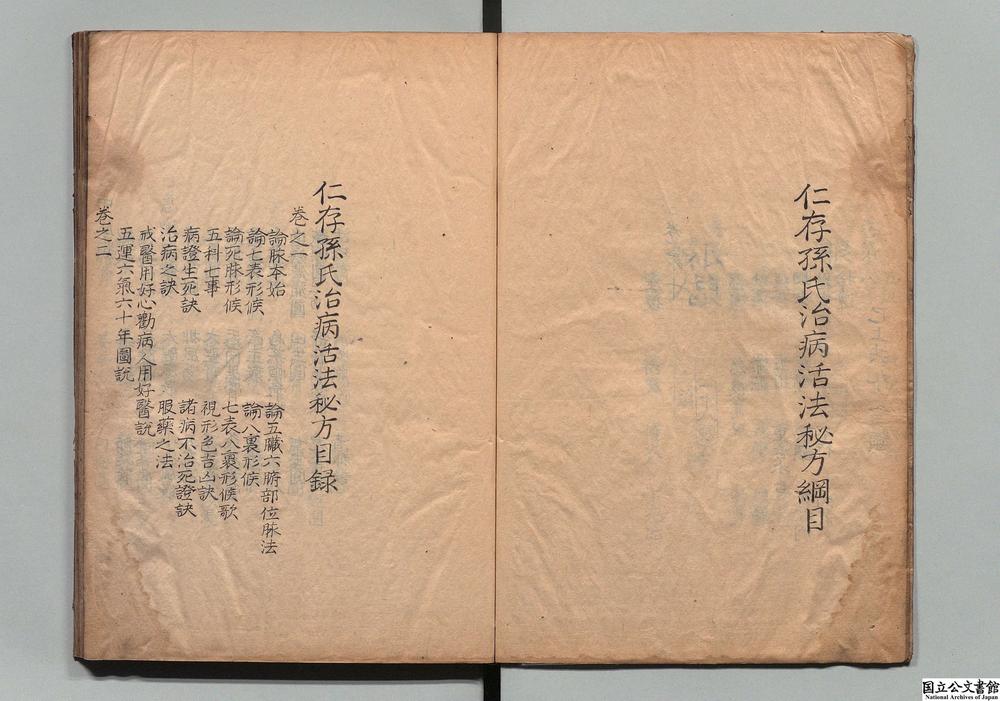 仁存孫氏治病活法秘方綱目
仁存孫氏治病活法秘方目録
巻之一
論脉本始　論五臟六腑部位脉法
論七表形候　論八裏形候
論死脉形候　七表八裏形候歌
五科七事　視形色吉凶訣
病證生死訣　諸病不治死證訣
治病之訣　服藥之法
戒醫用好心勸病人用好醫説
五運六氣六十年圖説
巻之二
国立公文書館
National Archives of Japan